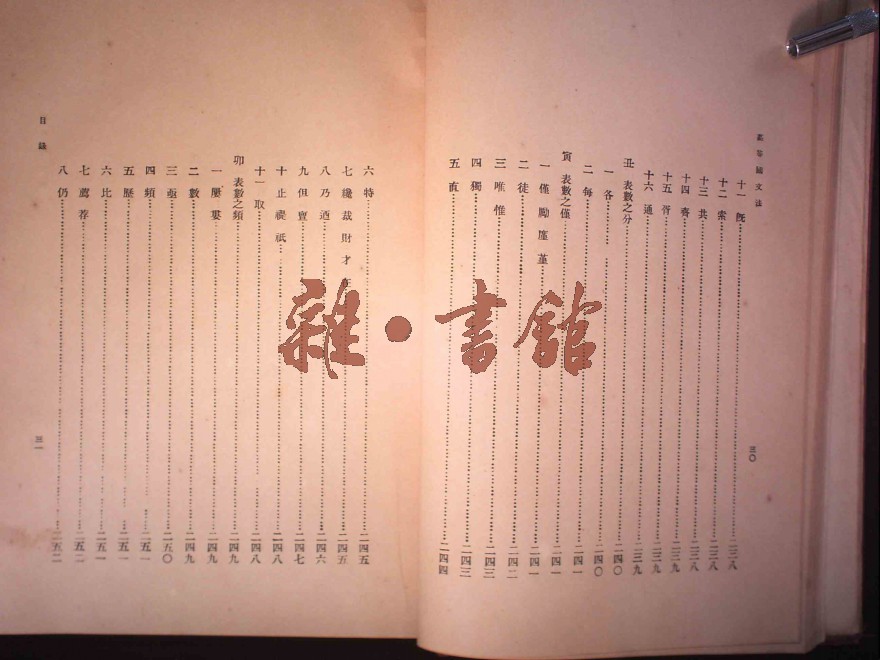 高等國文法
十一 既 二三八
十二 索 二三八
十三 共 二三八
十四 齊 二三九
十五 胥 二三九
十六 通 二三九
丑 表數之分 二四〇
一 各 二四〇
二 每 二四一
寅 表數之僅 二四一
一 僅 勵 廑 堇 二四一
二 徒 二四二
三 唯 惟 二四三
四 獨 二四三
五 直 二四四
三〇
目錄
六 特 二四五
七 纔 裁 財 才 二四五
八 乃 迺 二四六
九 但 亶 二四七
十 止 禔 祇 二四八
十一 取 二四八
卯 表數之頻 二四九
一 屢 婁 二四九
二 數 二四九
三 亟 二五〇
四 頻 二五一
五 歷 二五一
六 比 二五一
七 薦 荐 二五二
八 仍 二五二
三一
雜·書館